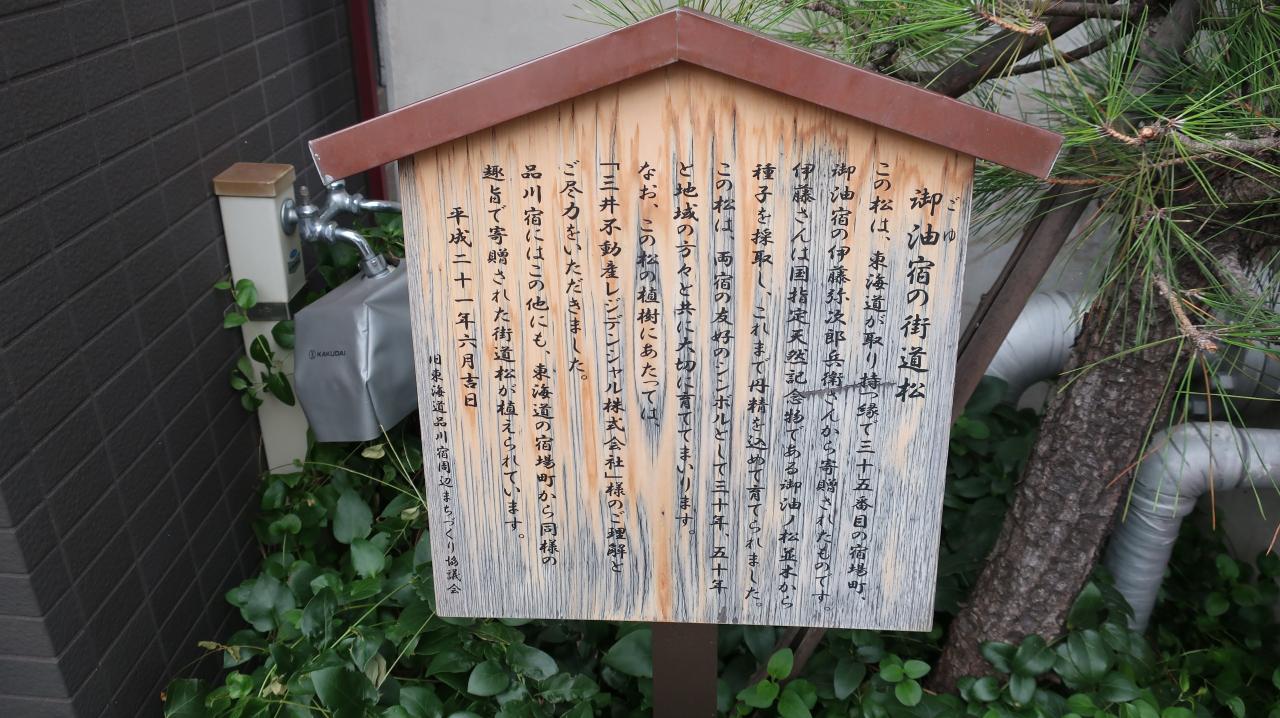 ごゆ
御油宿の街道松
この松は、東海道が取り持つ縁で三十五番目の宿場町、
御油宿の伊藤弥次郎兵衛さんから寄贈されたものです。
伊藤さんは国指定天然記念物である御油ノ松並木から
種子を採取し、これまで丹精を込めて育てられました。
この松は、両宿の友好のシンボルとして三十年、五十年
と地域の方々と共に大切に育ててまいります。
なお、この松の植樹にあたっては、
「三井不動産レジデンシャル株式会社」様のご理解と
ご尽力をいただきました。
品川宿にはこの他にも、東海道の宿場町から同様の
趣旨で寄贈された街道松が植えられています。
平成二十一年六月吉日
旧東海道品川宿周辺まちづくり協議会
KAKUDAI